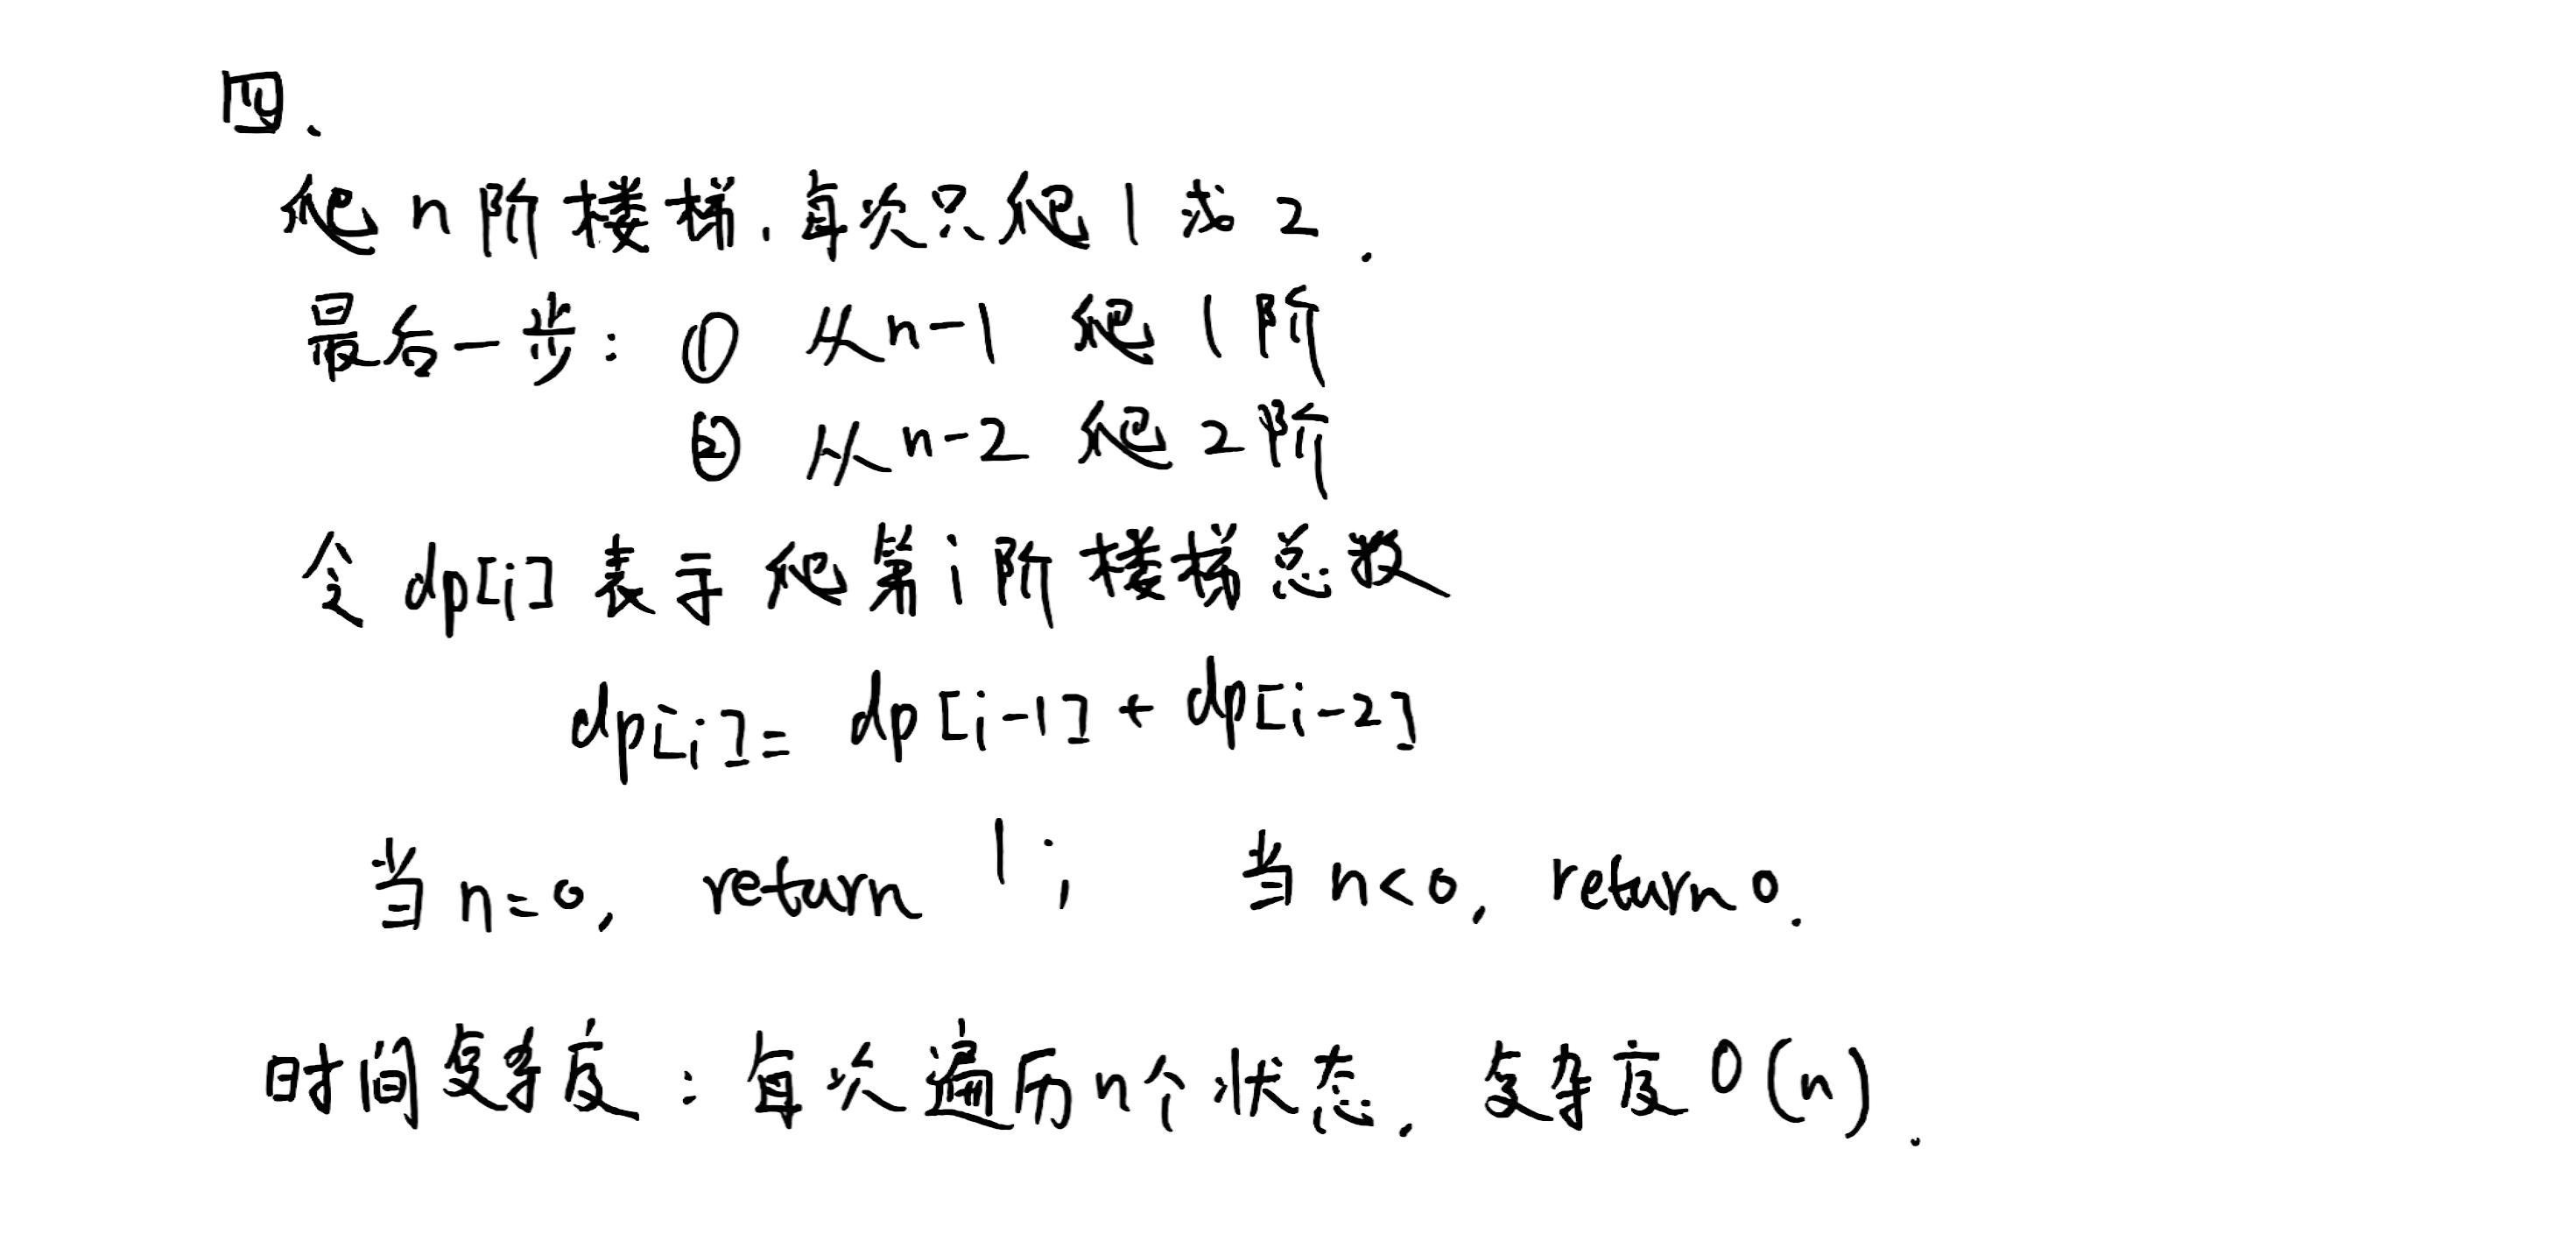 四、
爬 n 阶楼梯，每次只爬 1 或 2．
最后一步：① 从 n-1 爬 1 阶
② 从 n-2 爬 2 阶
令 dp[i] 表示爬第 i 阶楼梯总数
dp[i] = dp[i-1] + dp[i-2]
当 n=0, return 1; 当 n<0, return 0.
时间复杂度：每次遍历 n 个状态，复杂度 O(n).